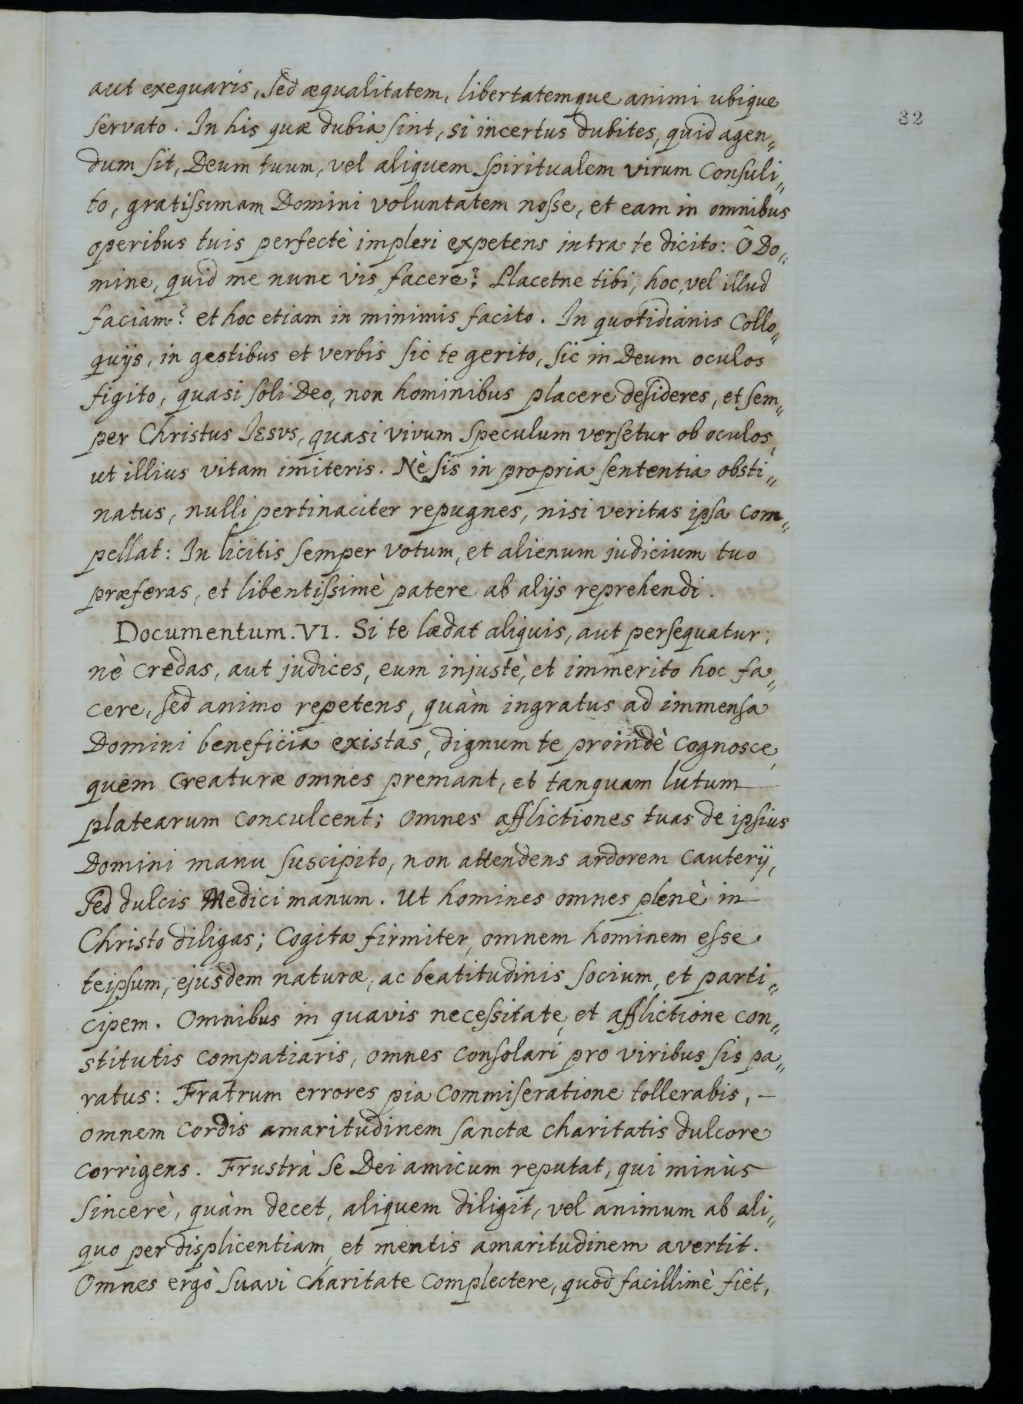 82
aut exequaris, sed æqualitatem, libertatemque animi ubique
servato. In his quæ dubia sint, si incertus dubites, quid agen„
dum sit, Deum tuum, vel aliquem spiritualem virum consuli„
to, gratissimam Domini voluntatem nosse, et eam in omnibus
operibus tuis perfectè impleri expetens intra te dicito: Ô Do„
mine, quid me nunc vis facere? Placetne tibi, hoc, vel illud
faciam? et hoc etiam in minimis facito. In quotidianis Collo„
quijs, in gestibus et verbis sic te gerito, sic in Deum oculos
figito, quasi soli Deo, non hominibus placere desideres, et sem„
per Christus Iesvs, quasi vivum speculum versetur ob oculos,
ut illius vitam imiteris. Nè sis in propria sententia obsti„
natus, nulli pertinaciter repugnes, nisi veritas ipsa com„
pellat: In licitis semper votum, et alienum judicium tuo
præferas, et libentissimè patere ab alijs reprehendi.
Documentum. VI. Si te lædat aliquis, aut persequatur;
nè credas, aut judices, eum injustè, et immerito hoc fa„
cere, sed animo repetens, quàm ingratus ad immensa
Domini beneficia existas, dignum te proindè cognosce,
quem creaturæ omnes premant, et tanquam lutum
platearum conculcent; omnes afflictiones tuas de ipsius
Domini manu suscipito, non attendens ardorem cauterij,
sed dulcis Medici manum. Ut homines omnes plenè in
Christo diligas; Cogita firmiter, omnem hominem esse
teipsum, ejusdem naturæ, ac beatitudinis socium, et parti„
cipem. Omnibus in quavis necessitate, et afflictione con„
stitutis compatiaris, omnes consolari pro viribus sis pa„
ratus: Fratrum errores pia commiseratione tollerabis, –
omnem cordis amaritudinem sanctæ charitatis dulcore
corrigens. Frustrà se Dei amicum reputat, qui minùs
sincerè, quàm decet, aliquem diligit, vel animum ab ali„
quo per displicentiam, et mentis amaritudinem avertit.
Omnes ergò suavi charitate complectere, quod facillimè fiet,